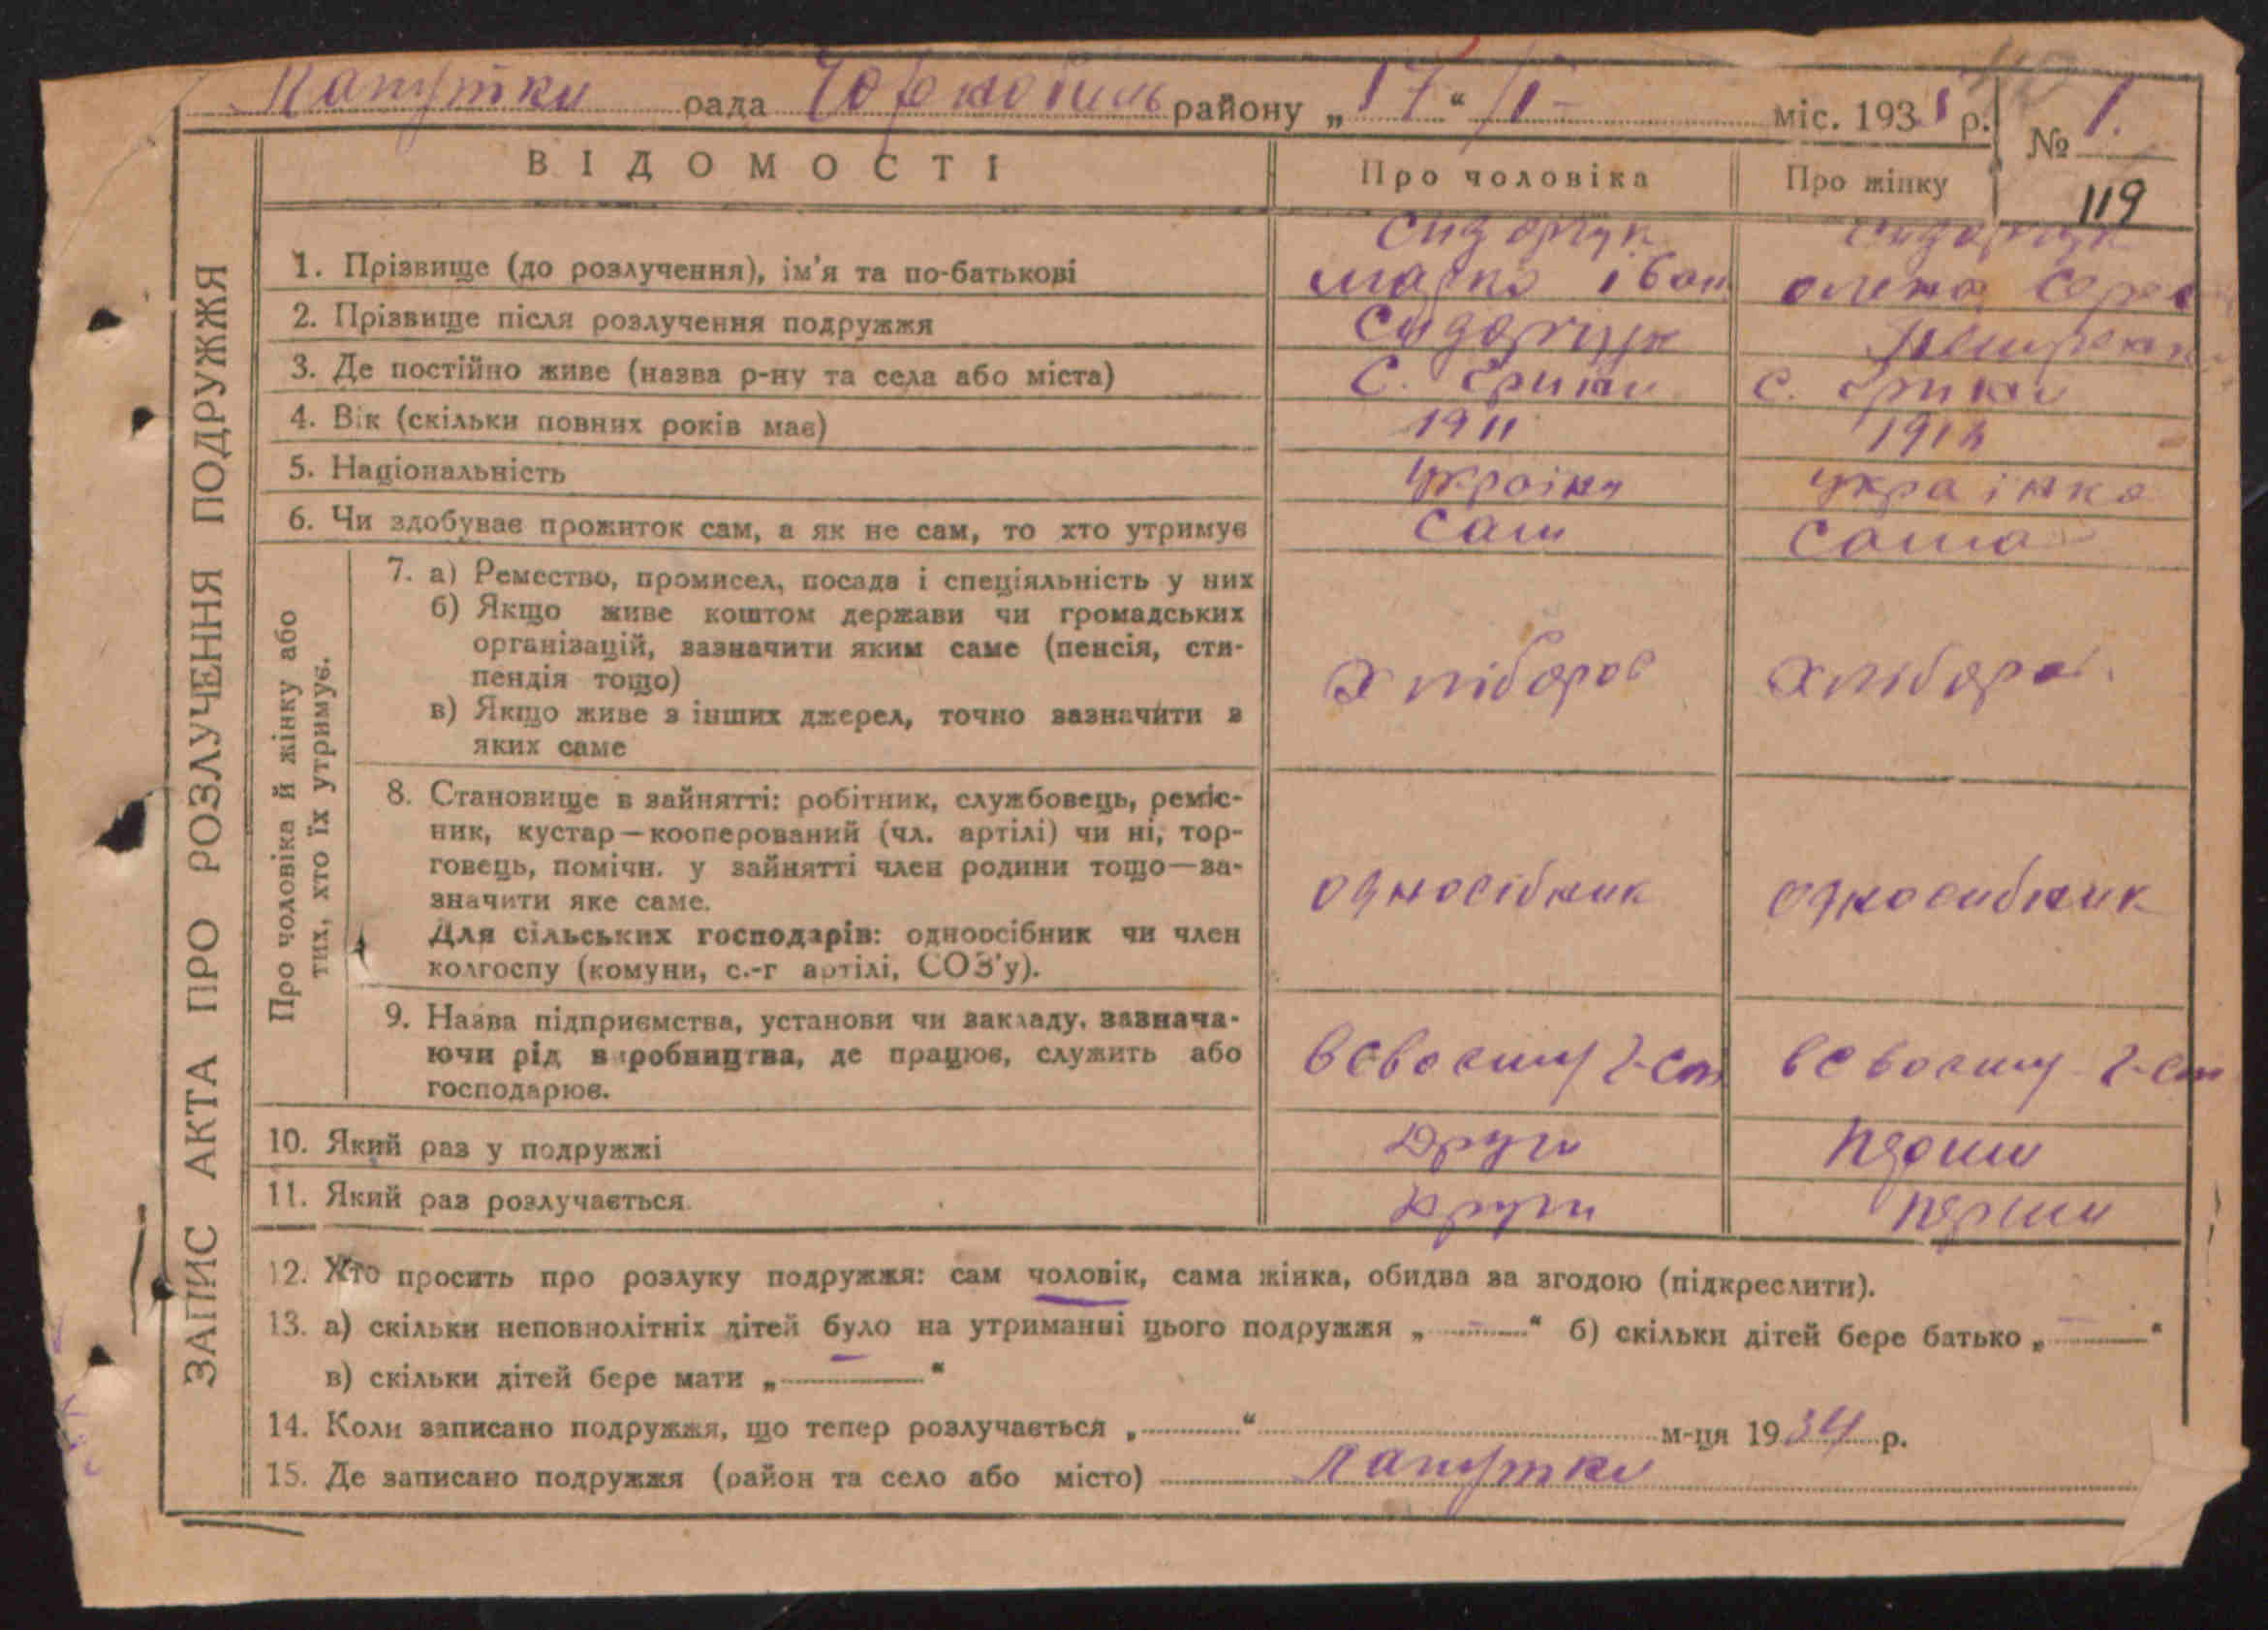 рада Чорнобиль району „ 17 “ /I- міс. 193 р. № 1.
119
ЗАПИС АКТА ПРО РОЗЛУЧЕННЯ ПОДРУЖЖЯ
ВІДОМОСТІ Про чоловіка Про жінку
Сидорчук Сидорчук
1. Прізвище (до розлучення), ім’я та по-батькові марко іван олена
2. Прізвище після розлучення подружжя Сидорчук
3. Де постійно живе (назва р-ну та села або міста) С. с.
4. Вік (скільки повних років має) 1911
5. Національність україн українка
6. Чи здобуває прожиток сам, а як не сам, то хто утримує сам сама
Про чоловіка й жінку або
тих, хто їх утримує.
7. а) Ремество, промисел, посада і спеціяльність у них
б) Якщо живе коштом держави чи громадських
організацій, зазначити яким саме (пенсія, сти-
пендія тощо)
хлібороб хлібороб
в) Якщо живе з інших джерел, точно зазначити з
яких саме
8. Становище в зайнятті: робітник, службовець, реміс-
ник, кустар—кооперований (чл. артілі) чи ні, тор-
говець, помічн. у зайнятті член родини тощо—за-
значити яке саме.
односібник односибник
Для сільських господарів: одноосібник чи член
колгоспу (комуни, с.-г артілі, СОЗ’у).
9. Назва підприємства, установи чи закладу, зазнача-
ючи рід виробництва, де працює, служить або
господарює.
всвосму г-ст всвосму г-ст
10. Який раз у подружжі Други перши
11. Який раз розлучається Други перши
12. Хто просить про розлуку подружжя: сам чоловік, сама жінка, обидва за згодою (підкреслити).
13. а) скільки неповнолітніх дітей було на утриманні цього подружжя „ — “ б) скільки дітей бере батько „ — “
в) скільки дітей бере мати „ — “
14. Коли записано подружжя, що тепер розлучається „ “ м-ця 1934 р.
15. Де записано подружжя (район та село або місто)